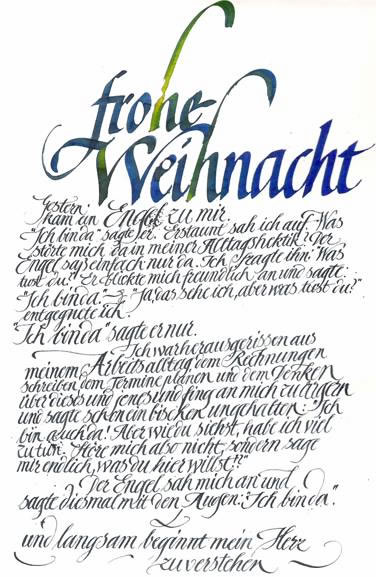 frohe
Weihnacht
Gestern
kam ein Engel zu mir.
"Ich bin da" sagte er. Erstaunt sah ich auf. Was
störte mich da in meiner Alltagshektik? Der
Engel saß einfach nur da. Ich fragte ihn: "Was
tust du?" Er blickte mich freundlich an und sagte:
"Ich bin da". – "Ja, das sehe ich, aber was tust du?"
entgegnete ich.
"Ich bin da" sagte er nur.
Ich war herausgerissen aus
meinem Arbeitsalltag, dem Rechnungen
schreiben, dem Termine planen und dem Denken
über dieses und jenes und fing an mich zu ärgern
und sagte schon ein bisschen ungehalten: "Ich
bin auch da! Aber wie du siehst, habe ich viel
zu tun. Störe mich also nicht, sondern sage
mir endlich, was du hier willst!?"
Der Engel sah mich an und
sagte diesmal mit den Augen: "Ich bin da".
und langsam beginnt mein Herz
zu verstehen